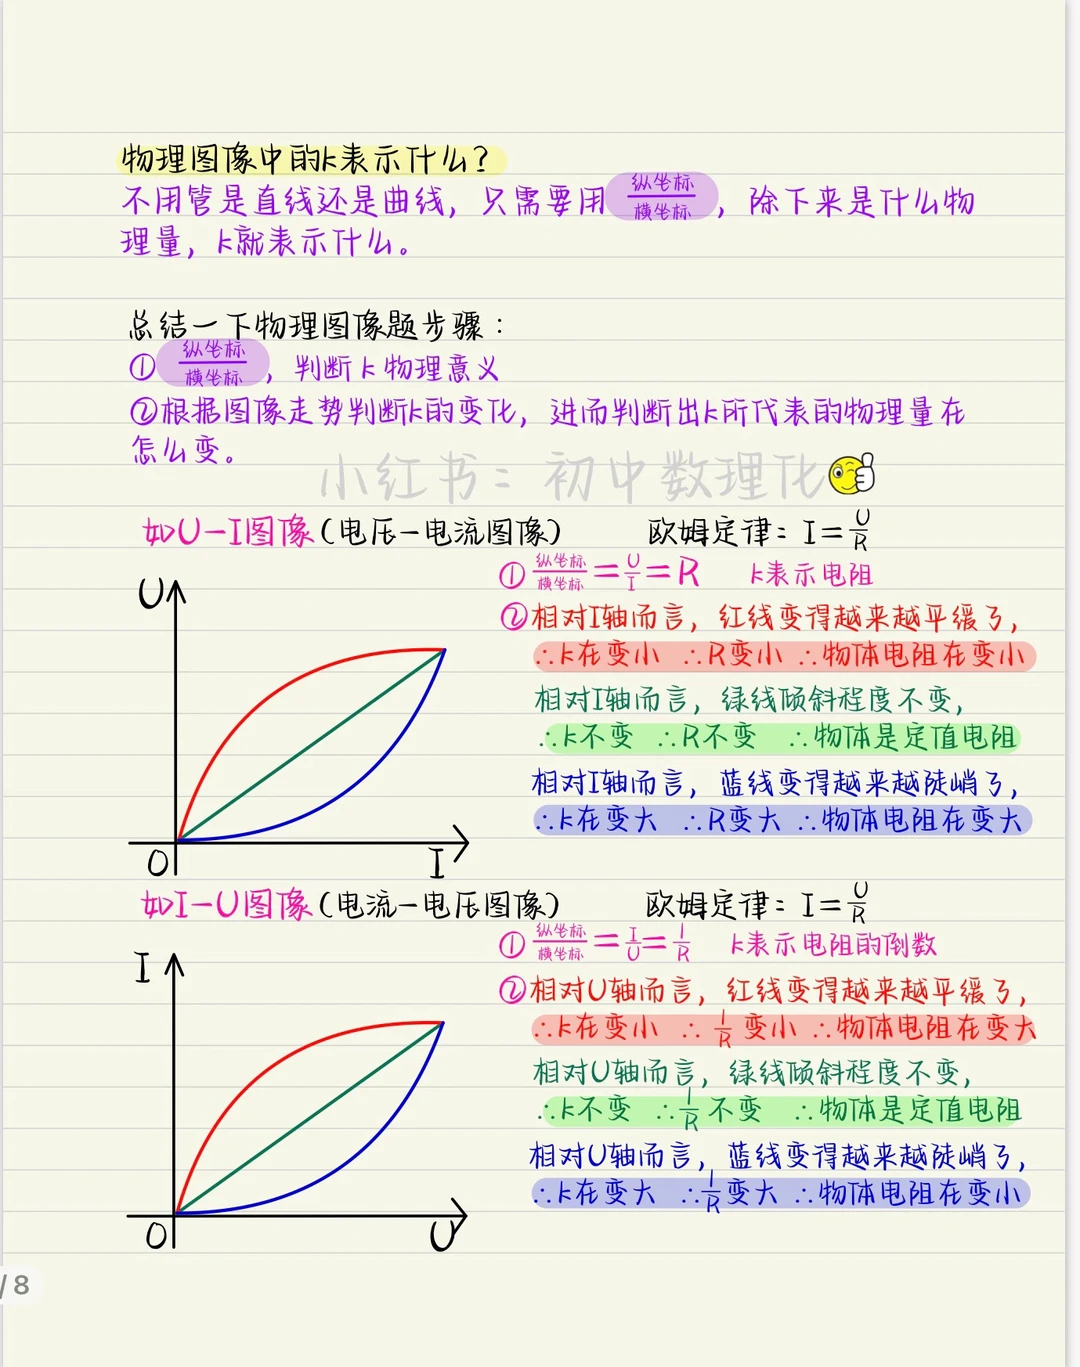 物理图像中的k表示什么?
不用管是直线还是曲线，只需要用 纵坐标/横坐标 ，除下来是什么物
理量，k就表示什么。
总结一下物理图像题步骤：
① 纵坐标/横坐标 ，判断k物理意义
②根据图像走势判断k的变化，进而判断出k所代表的物理量在
怎么变。
小红书：初中数理化
如U-I图像(电压-电流图像) 欧姆定律：I=U/R
① 纵坐标/横坐标=U/I=R k表示电阻
②相对I轴而言，红线变得越来越平缓了，
∴k在变小 ∴R变小 ∴物体电阻在变小
相对I轴而言，绿线倾斜程度不变，
∴k不变 ∴R不变 ∴物体是定值电阻
相对I轴而言，蓝线变得越来越陡峭了，
∴k在变大 ∴R变大 ∴物体电阻在变大
U
O
I
如I-U图像(电流-电压图像) 欧姆定律：I=U/R
① 纵坐标/横坐标=I/U=1/R k表示电阻的倒数
②相对U轴而言，红线变得越来越平缓了，
∴k在变小 ∴1/R变小 ∴物体电阻在变大
相对U轴而言，绿线倾斜程度不变，
∴k不变 ∴1/R不变 ∴物体是定值电阻
相对U轴而言，蓝线变得越来越陡峭了，
∴k在变大 ∴1/R变大 ∴物体电阻在变小
I
O
U
/8